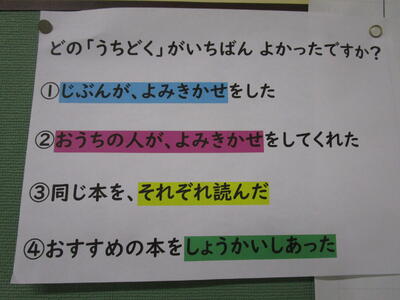 どの「うちどく」がいちばん よかったですか?
①じぶんが、よみきかせをした
②おうちの人が、よみきかせをしてくれた
③同じ本を、それぞれ読んだ
④おすすめの本をしょうかいしあった